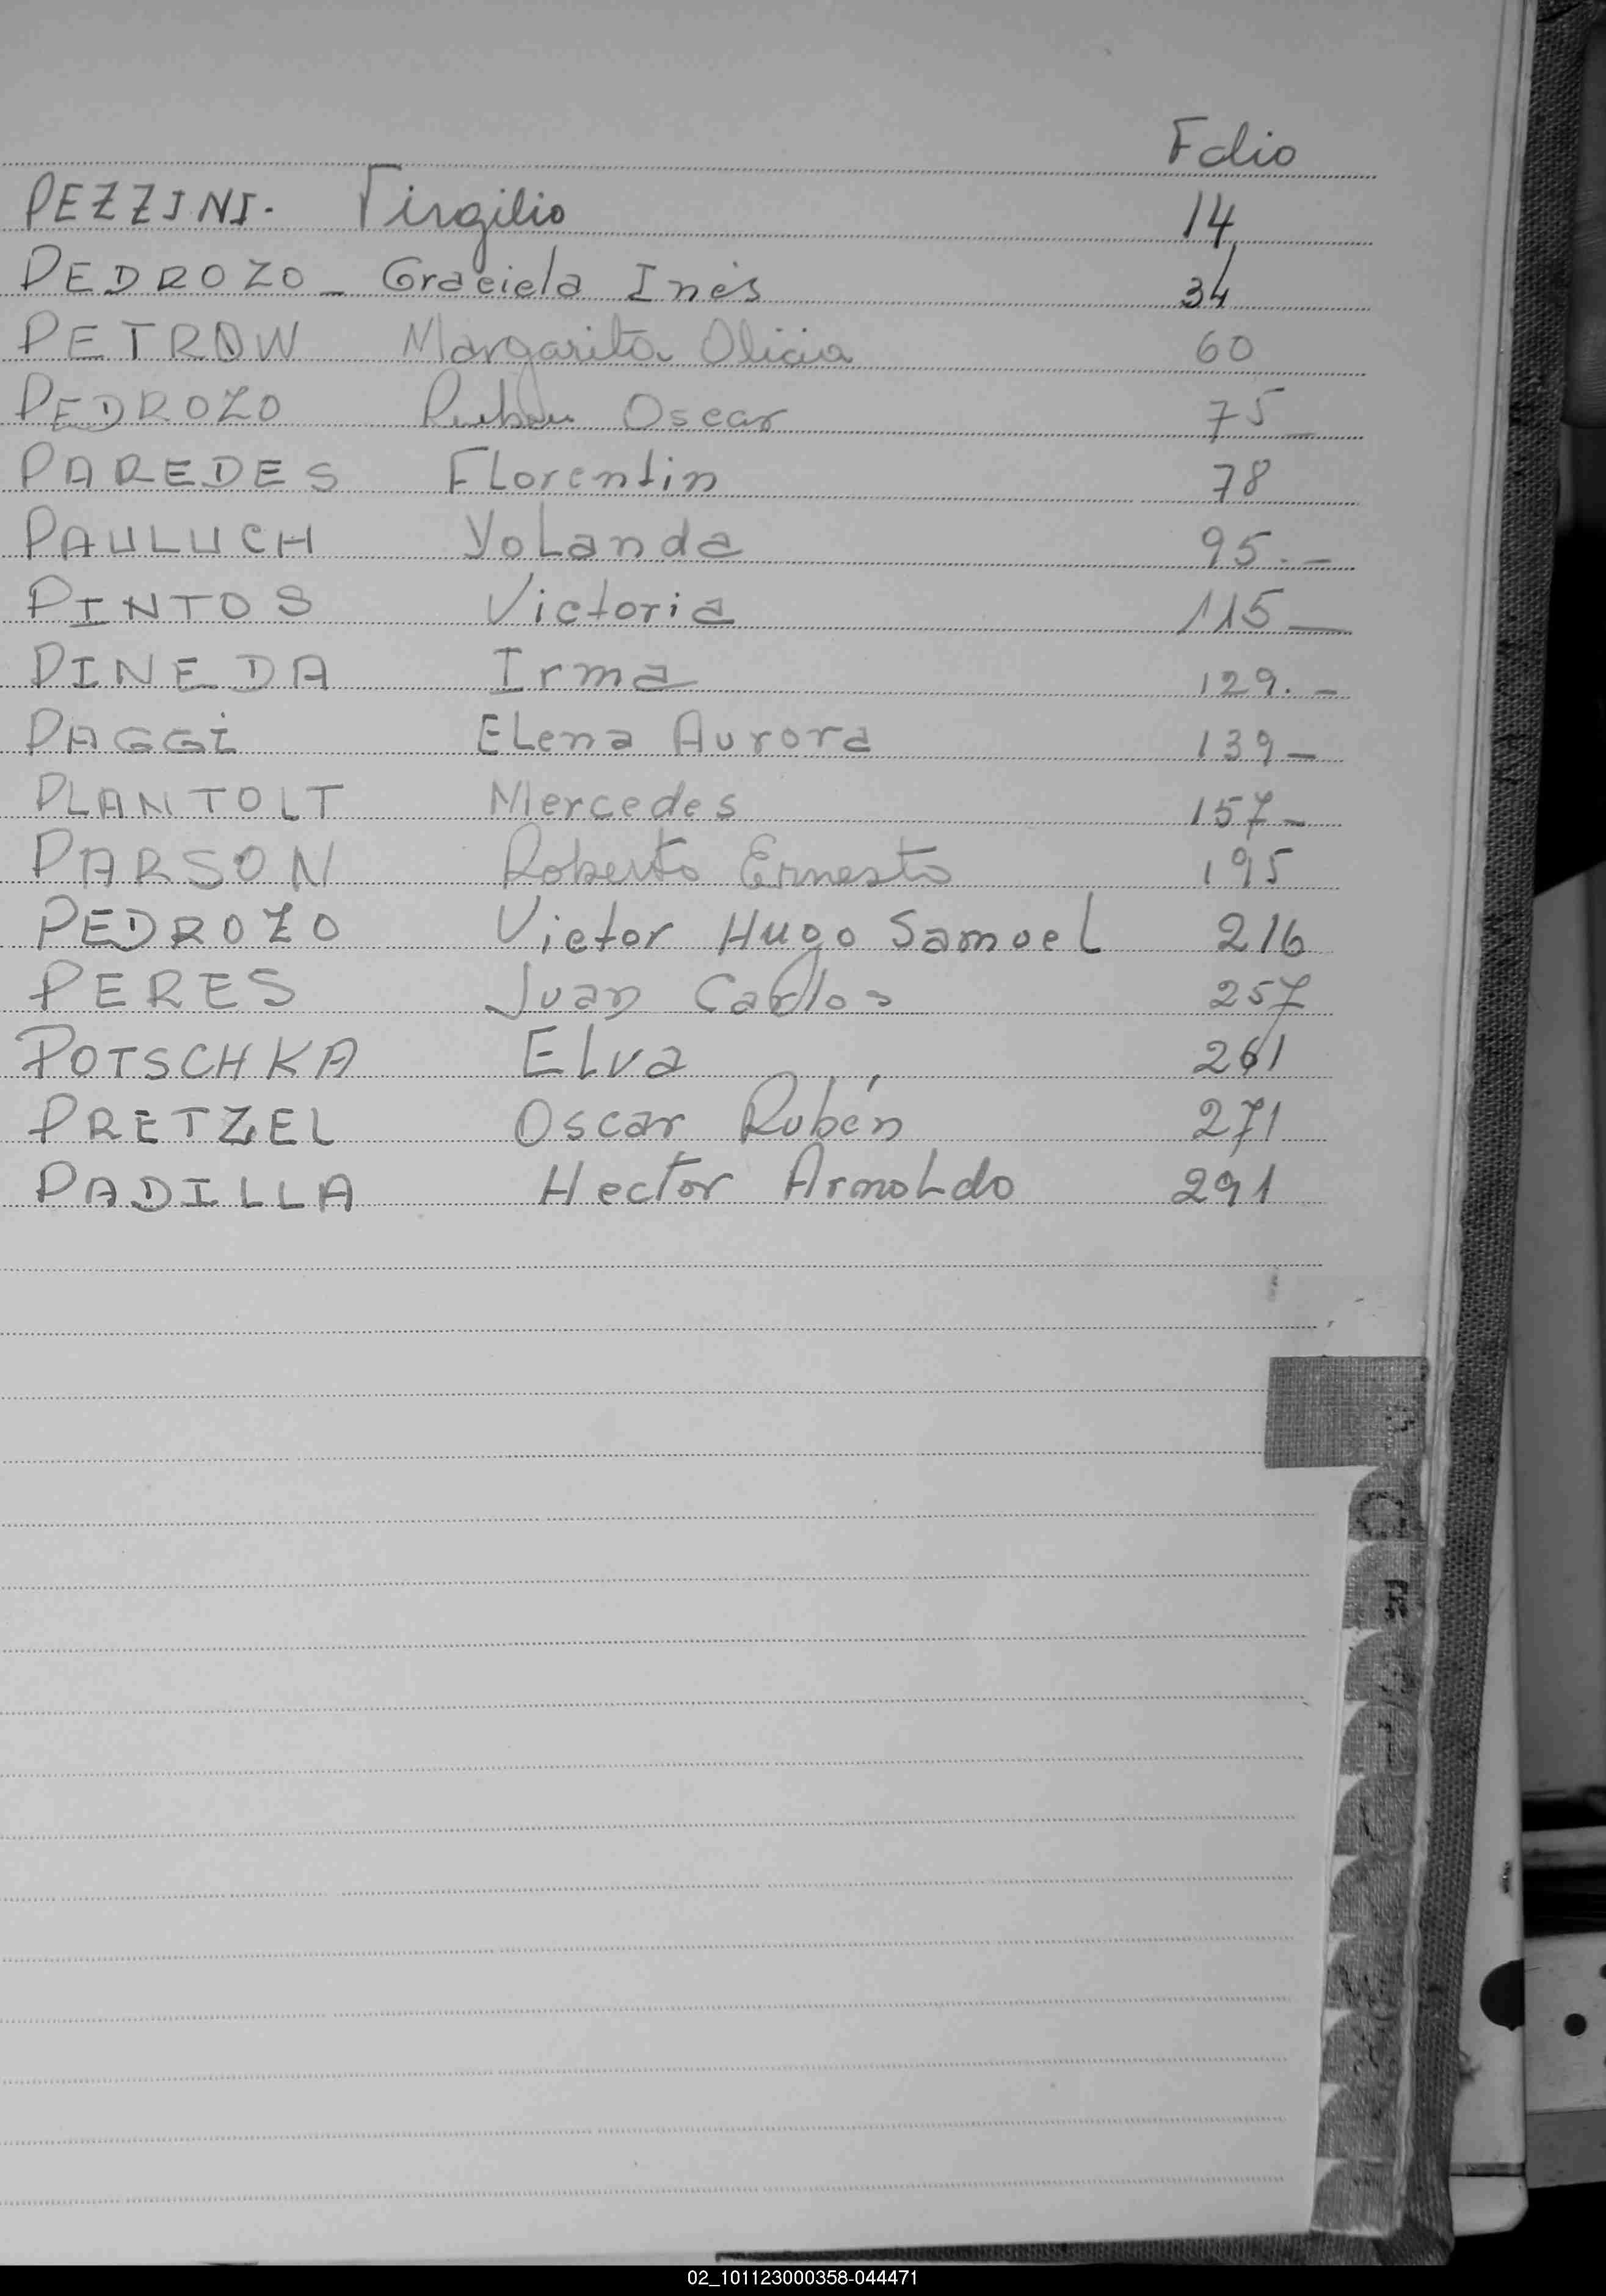 Folio
PEZZINI. Virgilio 14
PEDROZO - Graciela Inés 34
PETROW Margarita Alicia 60
PEDROZO Ruben Oscar 75
PAREDES Florentin 78
PAULUCH Yolanda 95.-
PINTOS Victoria 115-
PINEDA Irma 129.-
PAGGi Elena Aurora 139-
PLANTOLT Mercedes 157-
PARSON Roberto Ernesto 195
PEDROZO Victor Hugo Samuel 216
PERES Juan Carlos 257
POTSCHKA Elva 261
PRETZEL Oscar Rubén 271
PADILLA Hector Arnoldo 291
Q
R
02_101123000358-044471